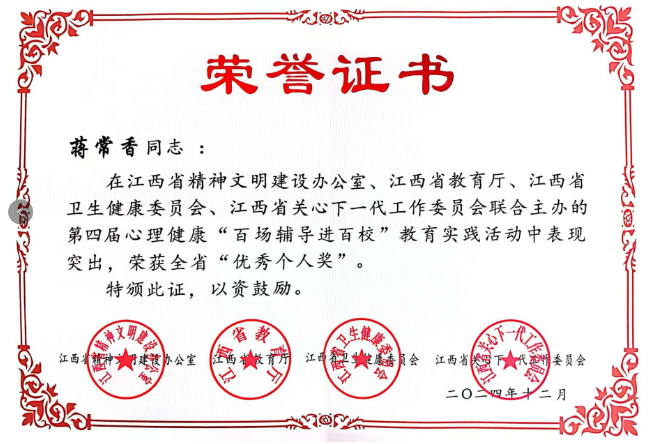 荣誉证书
蒋常香同志：
在江西省精神文明建设办公室、江西省教育厅、江西省
卫生健康委员会、江西省关心下一代工作委员会联合主办的
第四届心理健康“百场辅导进百校”教育实践活动中表现
突出，荣获全省“优秀个人奖”。
特颁此证，以资鼓励。
江西省精神文明建设办公室 江西省教育厅 江西省卫生健康委员会 江西省关心下一代工作委员会
江西省教育厅
江西省卫生健康委员会
江西省关心下一代工作委员会
二〇二四年十二月